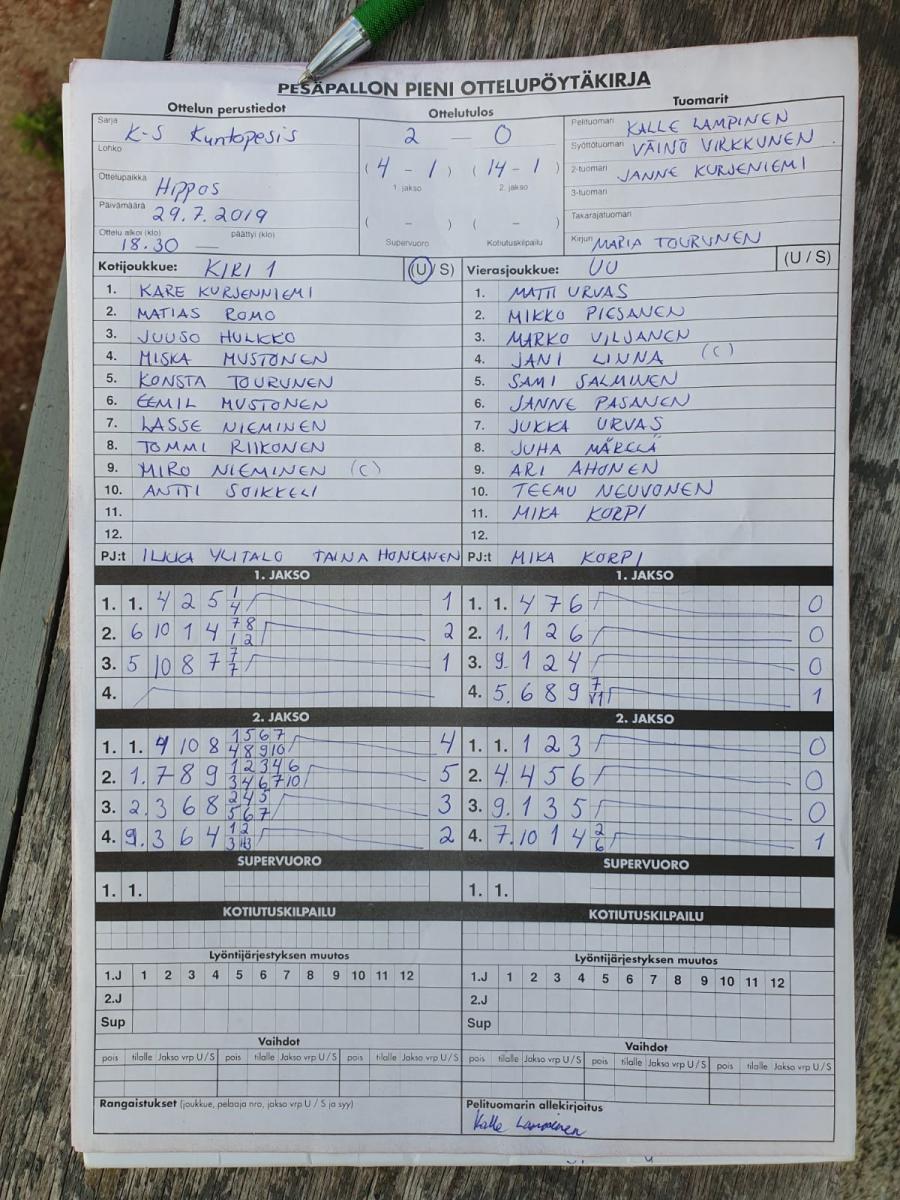 PESÄPALLON PIENI OTTELUPÖYTÄKIRJA
Ottelun perustiedot
Sarja K-S Kuntopesis
Lohko
Ottelupaikka Hippos
Päivämäärä 29.7.2019
Ottelu alkoi (klo) päättyi (klo)
18.30 —
Ottelutulos
2 — 0
( 4 - 1 ) ( 14 - 1 )
1. jakso 2. jakso
( - ) ( - )
Supervuoro Kotiutuskilpailu
Tuomarit
Pelituomari KALLE LAMPINEN
Syöttötuomari VÄINÖ VIRKKUNEN
2-tuomari JANNE KURJENIEMI
3-tuomari
Takarajatuomari
Kirjuri MARIA TOURUNEN
Kotijoukkue: KIRI 1 (U / S)
1. KARE KURJENNIEMI
2. MATIAS ROMO
3. JUUSO HULKKO
4. MISKA MUSTONEN
5. KONSTA TOURUNEN
6. EEMIL MUSTONEN
7. LASSE NIEMINEN
8. TOMMI RIIKONEN
9. MIRO NIEMINEN (C)
10. ANTTI SOIKKELI
11.
12.
PJ:t ILKKA YLITALO TAINA HONKANEN
Vierasjoukkue: UU (U / S)
1. MATTI URVAS
2. MIKKO PIESANEN
3. MARKO VILJANEN
4. JANI LINNA (C)
5. SAMI SALMINEN
6. JANNE PASANEN
7. JUKKA URVAS
8. JUHA MÄRELÄ
9. ARI AHONEN
10. TEEMU NEUVONEN
11. MIKA KORPI
12.
PJ:t MIKA KORPI
1. JAKSO
1. 1. 4 2 5 1 4 1
2. 6 10 1 4 7 8 1 2 2
3. 5 10 8 7 7 7 1
4.
2. JAKSO
1. 1. 4 10 8 1 5 6 7 4 8 9 10 4
2. 1. 7 8 9 1 2 3 4 6 3 4 6 7 10 5
3. 2. 3 6 8 2 4 5 5 6 7 3
4. 9. 3 6 4 1 2 3 2
SUPERVUORO
1. 1.
KOTIUTUSKILPAILU
Lyöntijärjestyksen muutos
1.J 1 2 3 4 5 6 7 8 9 10 11 12
2.J
Sup
Vaihdot
pois tilalle Jakso vrp U / S pois tilalle Jakso vrp U / S pois tilalle Jakso vrp U / S
Rangaistukset (joukkue, pelaaja nro, jakso vrp U / S ja syy)
1. JAKSO
1. 1. 4 7 6 0
2. 1. 1 2 6 0
3. 9. 1 2 4 0
4. 5. 6 8 9 7 V1 1
2. JAKSO
1. 1. 1 2 3 0
2. 4. 4 5 6 0
3. 9. 1 3 5 0
4. 7. 10 1 4 2 6 1
SUPERVUORO
1. 1.
KOTIUTUSKILPAILU
Lyöntijärjestyksen muutos
1.J 1 2 3 4 5 6 7 8 9 10 11 12
2.J
Sup
Vaihdot
pois tilalle Jakso vrp U / S pois tilalle Jakso vrp U / S pois tilalle Jakso vrp U / S
Pelituomarin allekirjoitus
Kalle Lampinen